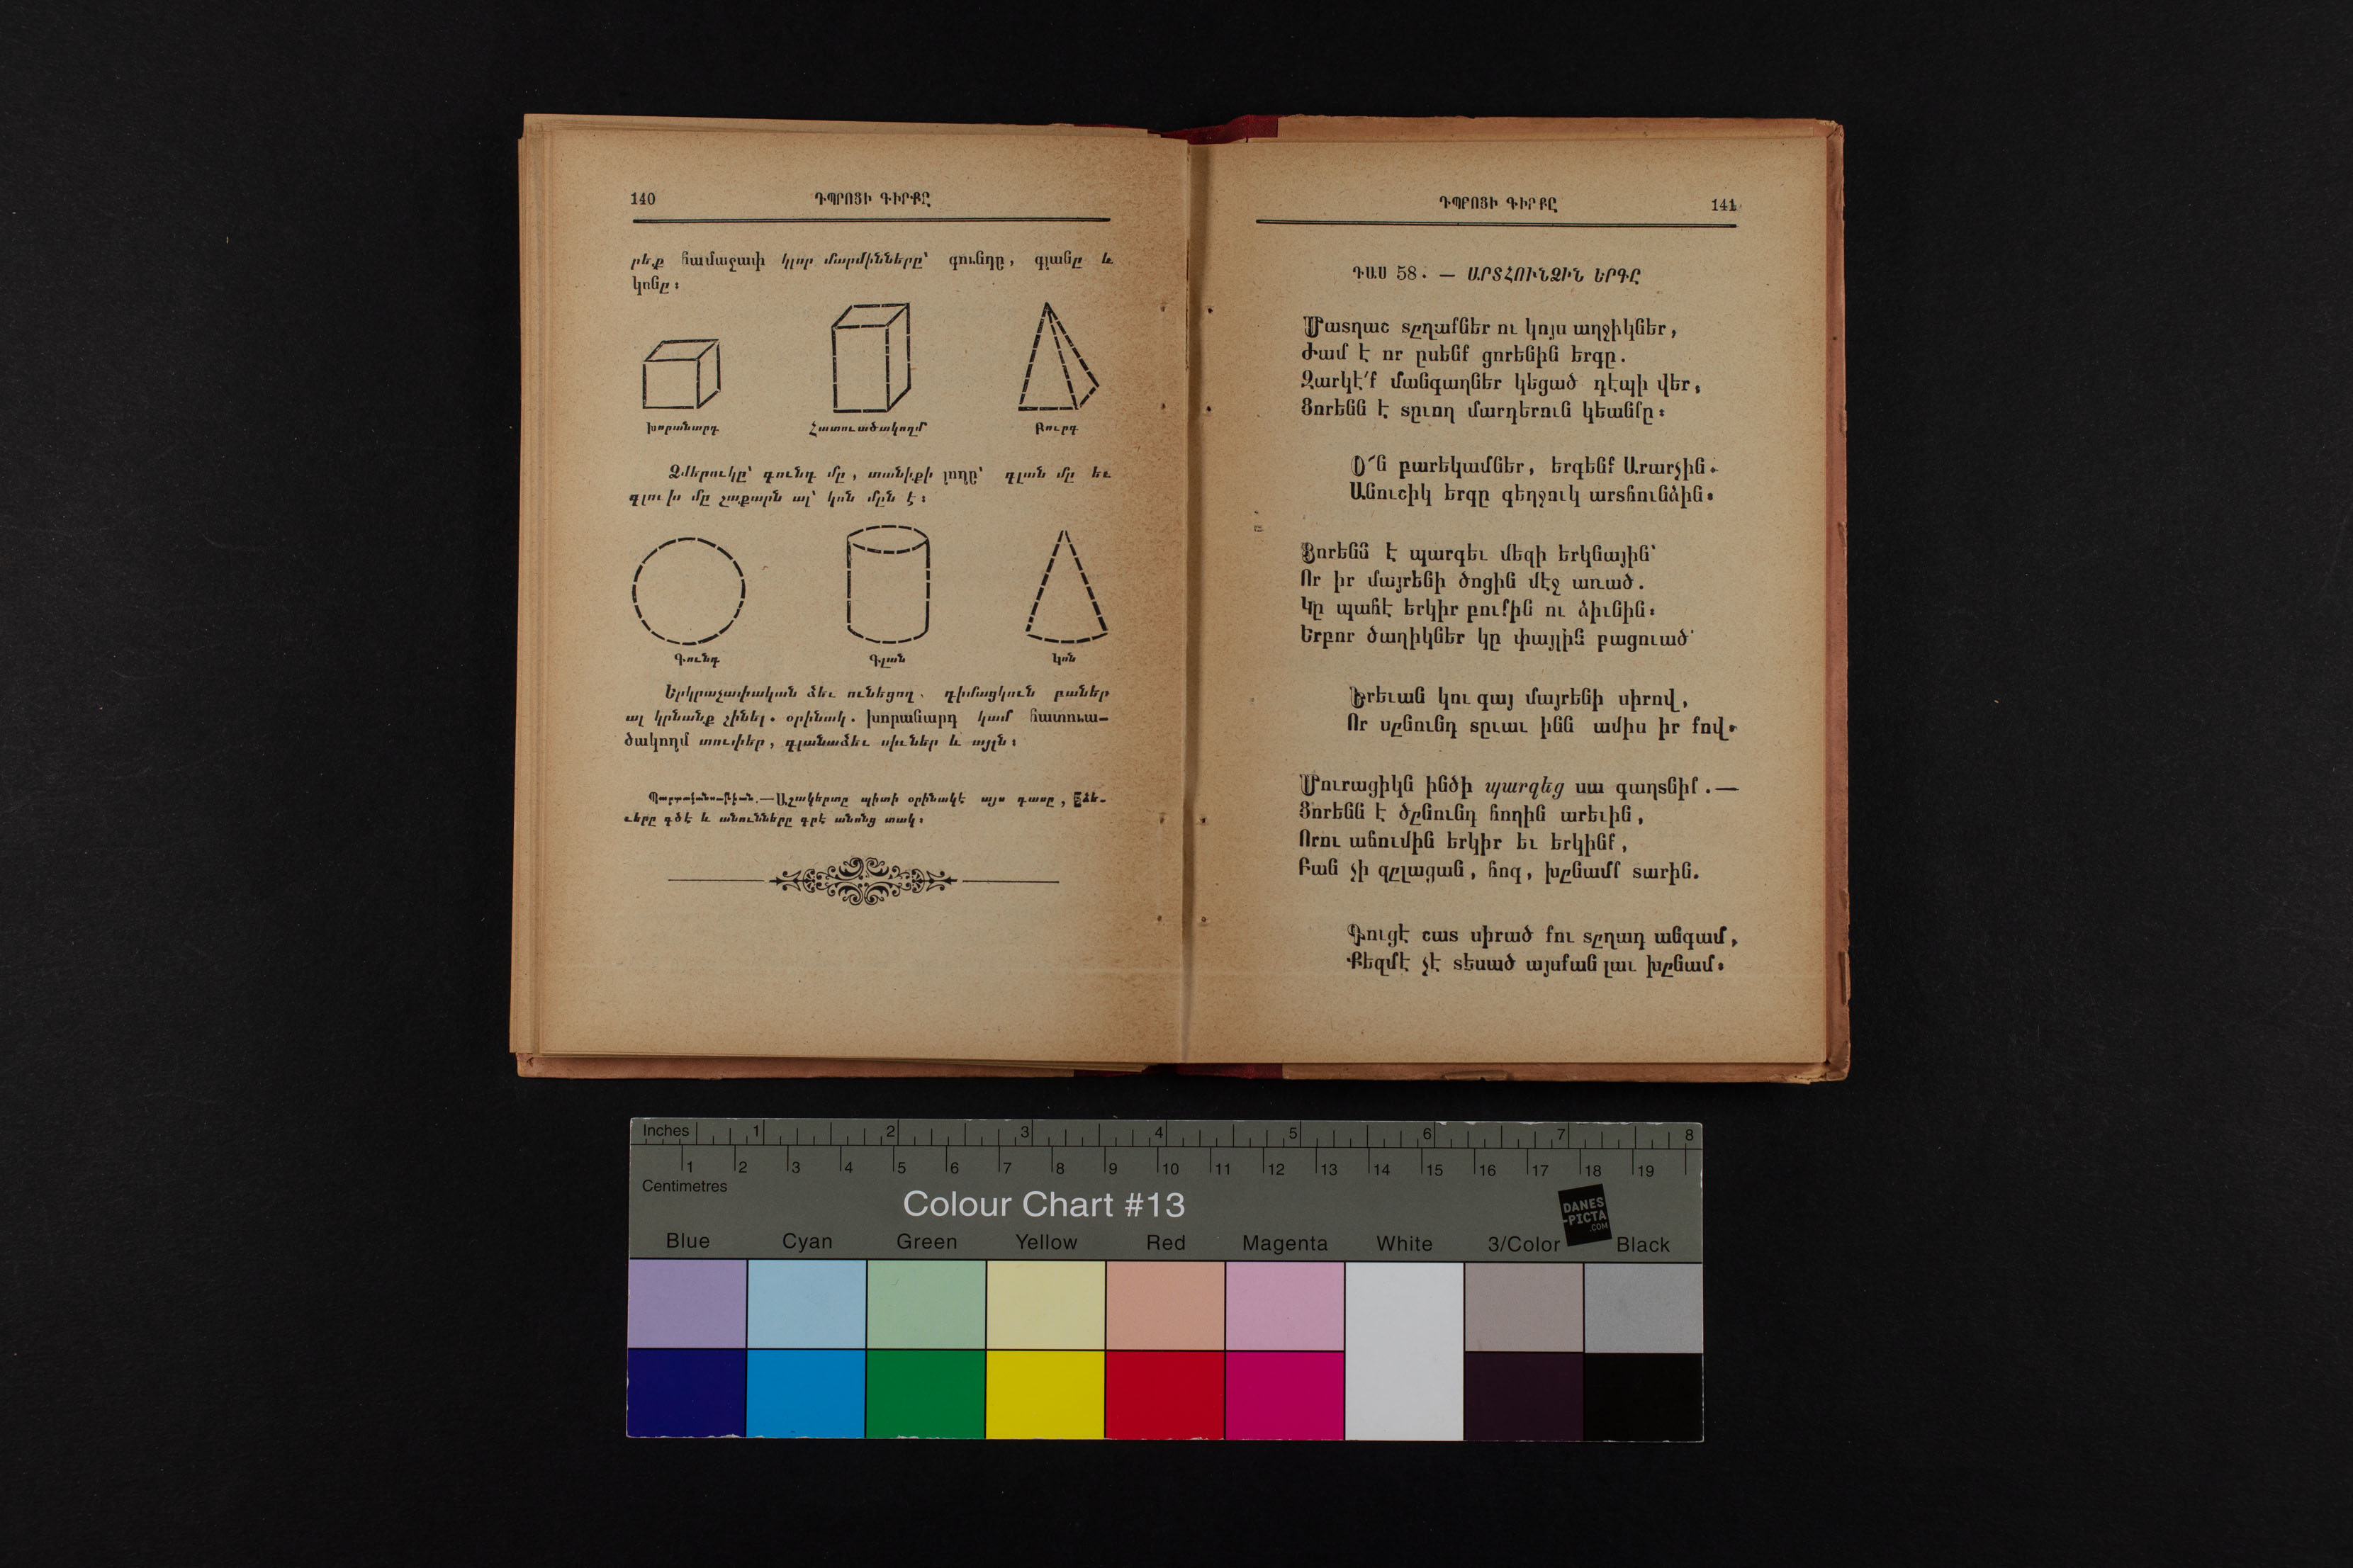 140
ԴՊՐՈՑԻ ԳԻՐՔԸ
րե.ք համաչափ կլոր մարմինները՝ գունդը, գլանը և
կոնը։
Խորանարդ
Հատուածակողմ
Բուրգ
Ձմերուկը՝ գունդ մը, տանիքի լողը՝ գլան մը եւ
գլուխ մը շաքարն ալ՝ կոն մըն է։
Գունդ
Գլան
Կոն
Երկրաչափական ձեւ ունեցող, դիմացկուն բաներ
ալ կրնանք շինել. օրինակ. խորանարդ կամ հատուա-
ծակողմ տուփեր, գլանաձեւ սիւներ և այլն։
Աշակերտը պիտի օրինակէ այս դասը, ձե-
ւերը գծէ և անունները գրէ անոնց տակ։
ԴՊՐՈՑԻ ԳԻՐՔԸ
141
ԴԱՍ 58. — ԱՐՏՀՈՒՆՁԻՆ ԵՐԳԸ
Մատղաշ տըղաքներ ու կոյս աղջիկներ,
Ժամ է որ ըսենք ցորենին երգը.
Զարկէ՛ք մանգաղներ կեցած դէպի վեր,
Ցորենն է տըւող մարդերուն կեանքը։
Օ՜ն բարեկամներ, երգենք Արարչին.
Անուշիկ երգը գեղջուկ արտհունձին։
Ցորենն է պարգեւ մեզի երկնային՝
Որ իր մայրենի ծոցին մէջ առած.
Կը պահէ երկիր բուքին ու ձիւնին։
Երբոր ծաղիկներ կը փայլին բացուած՝
Երեւան կու գայ մայրենի սիրով,
Որ սընունդ տըւաւ ինն ամիս իր քով։
Մուրացիկն ինծի պարզեց սա գաղտնիք.—
Ցորենն է ծընունդ հողին արեւին,
Որու աճումին երկիր եւ երկինք,
Բան չի զըլացան, հոգ, խընամք տարին.
Գուցէ շատ սիրած քու տըղադ անգամ,
Քեզմէ չէ տեսած այսքան լաւ խընամ։
Inches 1 2 3 4 5 6 7 8
1 2 3 4 5 6 7 8 9 10 11 12 13 14 15 16 17 18 19
Centimetres
Colour Chart #13
DANES
-PICTA
.COM
Blue Cyan Green Yellow Red Magenta White 3/Color Black